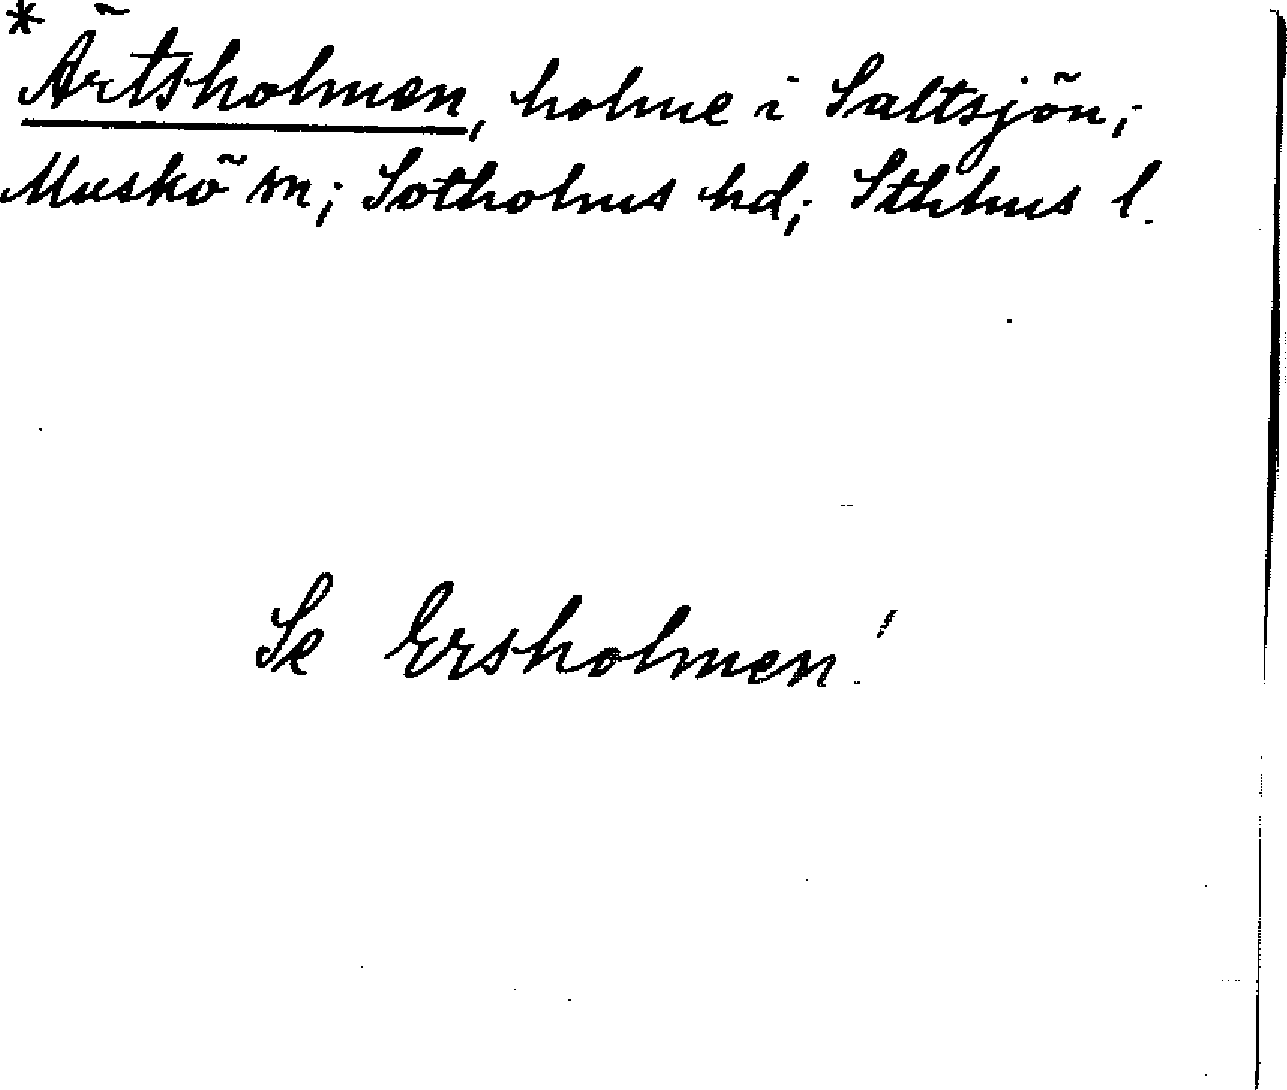 *Ärtsholmen, holme i Saltsjön;
Muskö sn; Sotholms hd; Sthlms l.
Se Ersholmen!